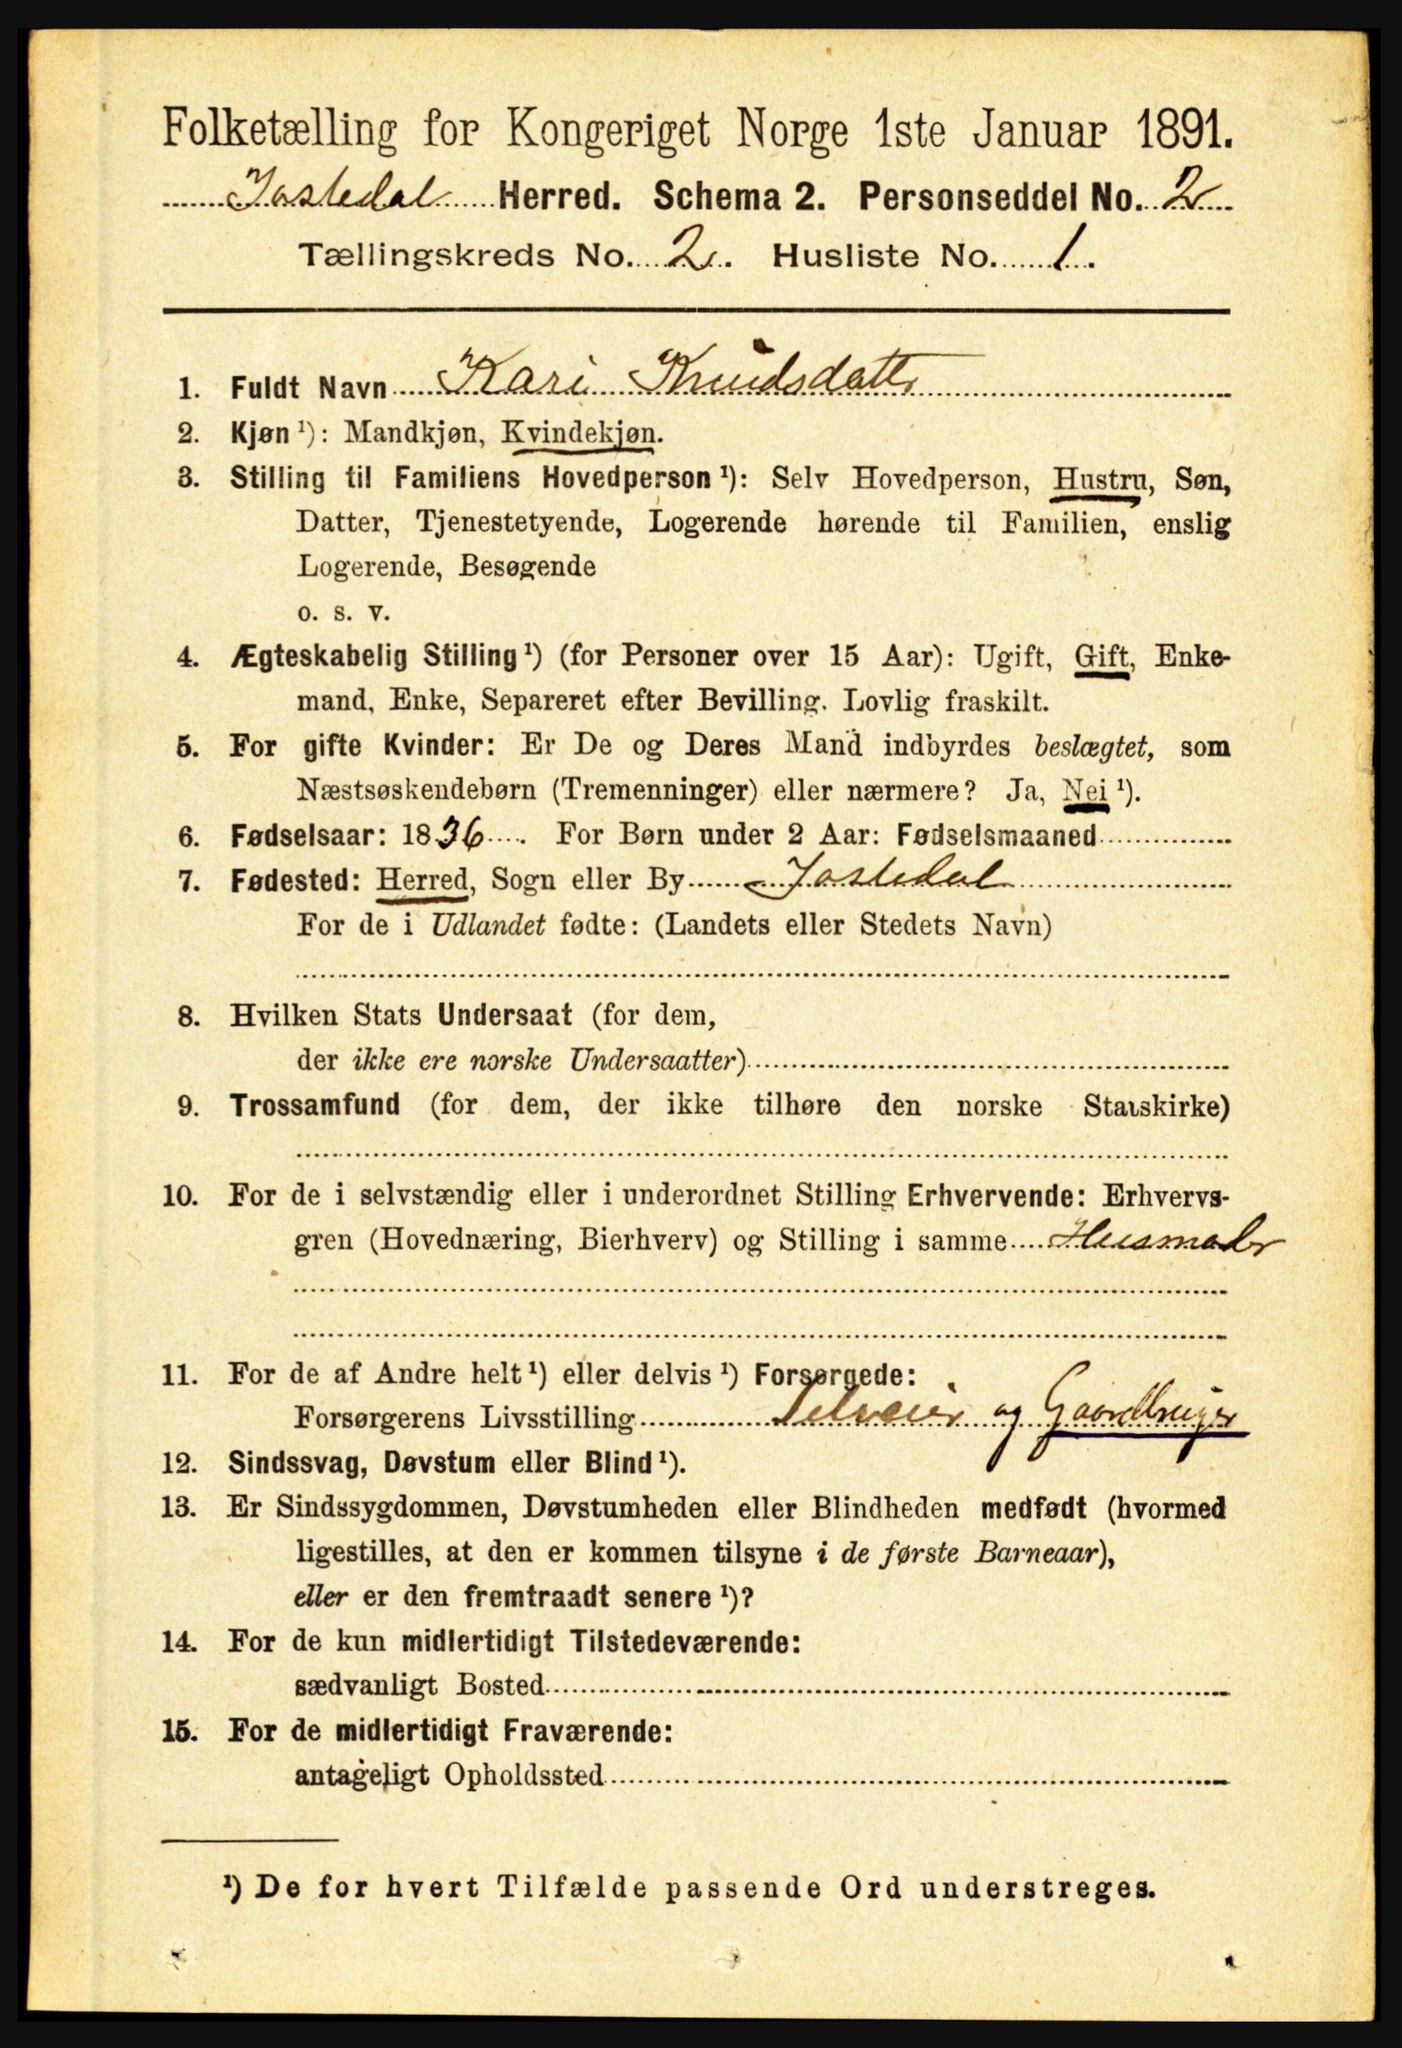 Folketælling for Kongeriget Norge 1ste Januar 1891.
Jostedal Herred. Schema 2. Personseddel No. 2
Tællingskreds No. 2. Husliste No. 1.
1. Fuldt Navn Kari Knudsdatter
2. Kjøn ¹): Mandkjøn, Kvindekjøn.
3. Stilling til Familiens Hovedperson ¹): Selv Hovedperson, Hustru, Søn,
Datter, Tjenestetyende, Logerende hørende til Familien, enslig
Logerende, Besøgende
o. s. v.
4. Ægteskabelig Stilling ¹) (for Personer over 15 Aar): Ugift, Gift, Enke-
mand, Enke, Separeret efter Bevilling. Lovlig fraskilt.
5. For gifte Kvinder: Er De og Deres Mand indbyrdes beslægtet, som
Næstsøskendebørn (Tremenninger) eller nærmere? Ja, Nei ¹).
6. Fødselsaar: 1836. For Børn under 2 Aar: Fødselsmaaned
7. Fødested: Herred, Sogn eller By Jostedal
For de i Udlandet fødte: (Landets eller Stedets Navn)
8. Hvilken Stats Undersaat (for dem,
der ikke ere norske Undersaatter)
9. Trossamfund (for dem, der ikke tilhøre den norske Statskirke)
10. For de i selvstændig eller i underordnet Stilling Erhvervende: Erhvervs-
gren (Hovednæring, Bierhverv) og Stilling i samme Husmoder
11. For de af Andre helt ¹) eller delvis ¹) Forsørgede:
Forsørgerens Livsstilling Selveier og Gaardbruger
12. Sindssvag, Døvstum eller Blind ¹).
13. Er Sindssygdommen, Døvstumheden eller Blindheden medfødt (hvormed
ligestilles, at den er kommen tilsyne i de første Barneaar),
eller er den fremtraadt senere ¹)?
14. For de kun midlertidigt Tilstedeværende:
sædvanligt Bosted
15. For de midlertidigt Fraværende:
antageligt Opholdssted
¹) De for hvert Tilfælde passende Ord understreges.